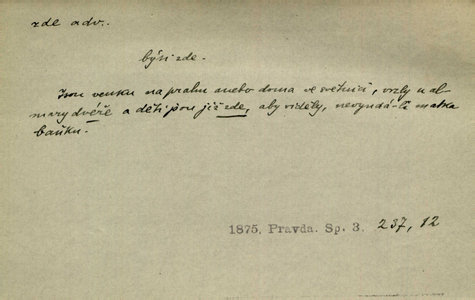 zde adv.
býti zde.
Jsou venku na prahu anebo doma ve světnici, vrzly u al-
mary dvéře a děti jsou již zde, aby viděly, nevyndá-li matka
baňku.
1875. Pravda. Sp. 3. 237, 12